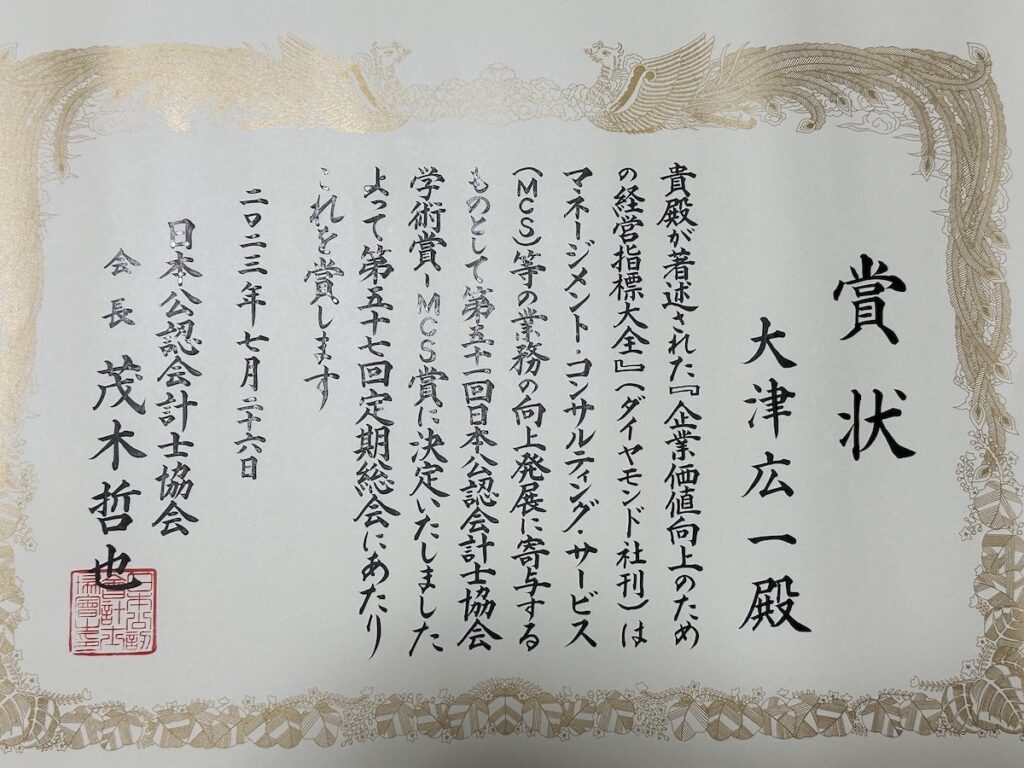 賞状
大津広一殿
貴殿が著述された『企業価値向上のため
の経営指標大全』(ダイヤモンド社刊)は
マネージメント・コンサルティング・サービス
(MCS)等の業務の向上発展に寄与する
ものとして第五十一回日本公認会計士協会
学術賞-MCS賞に決定いたしました
よって第五十七回定期総会にあたり
これを賞します
二〇二三年七月二十六日
日本公認会計士協会
会長 茂木哲也